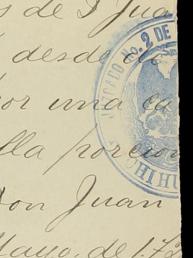 s de D Jua
desde
por una ca
lla porcion
Don Juan
Mayo, de 17
JUZGADO No. 2 DE
CHIHU